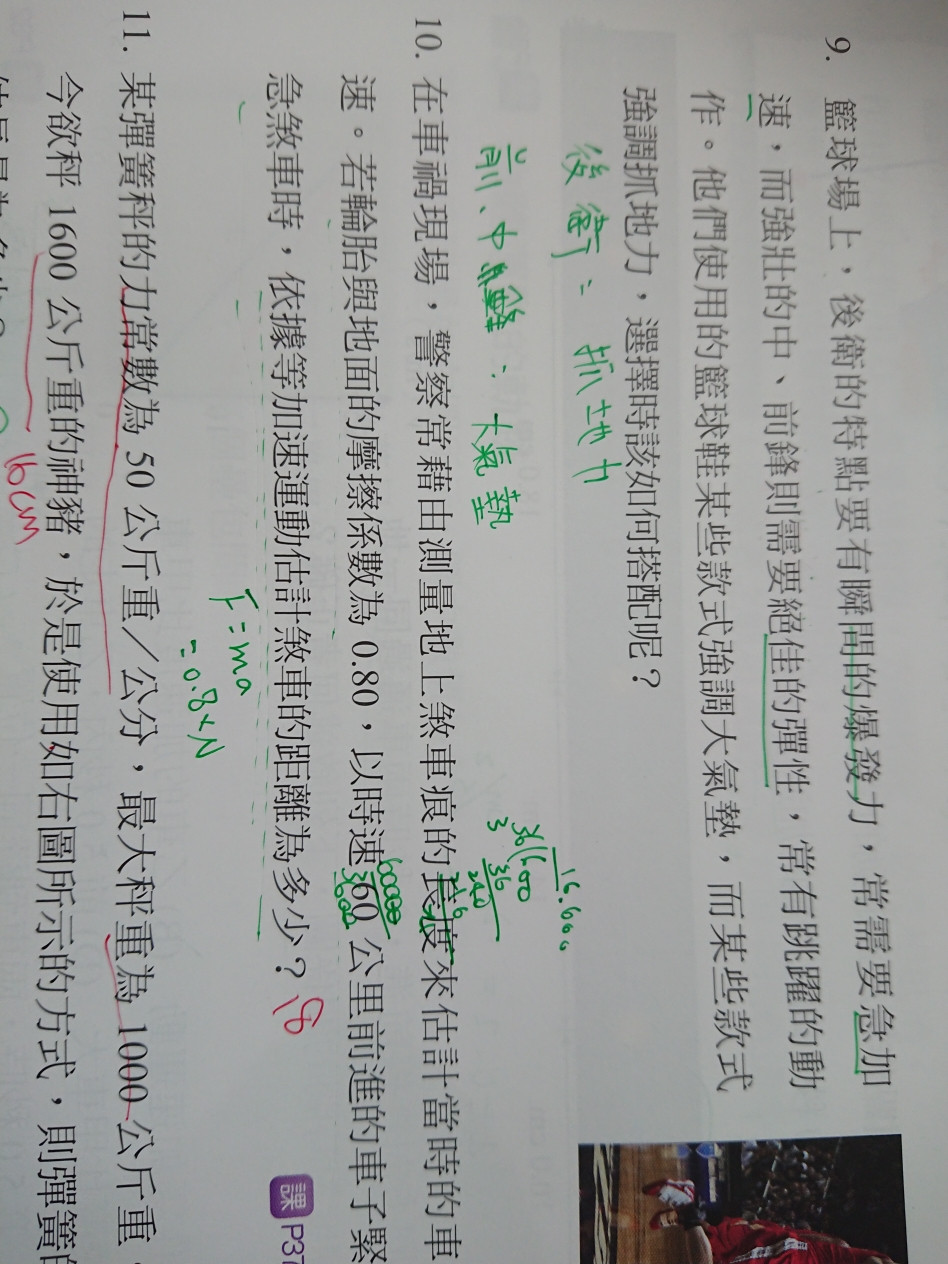 9. 籃球場上，後衛的特點要有瞬間的爆發力，常需要急加
速，而強壯的中、前鋒則需要絕佳的彈性，常有跳躍的動
作。他們使用的籃球鞋某些款式強調大氣墊，而某些款式
強調抓地力，選擇時該如何搭配呢？
後衛：抓地力
前、中鋒：大氣墊
16.666
36 600
36
240
216
3
10. 在車禍現場，警察常藉由測量地上煞車痕的長度來估計當時的車
速。若輪胎與地面的摩擦係數為 0.80，以時速 60 公里前進的車子緊
60000
3600
急煞車時，依據等加速運動估計煞車的距離為多少？18
課 P37
F=ma
=0.8×N
11. 某彈簧秤的力常數為 50 公斤重／公分，最大秤重為 1000 公斤重，
今欲秤 1600 公斤重的神豬，於是使用如右圖所示的方式，則彈簧的
16cm